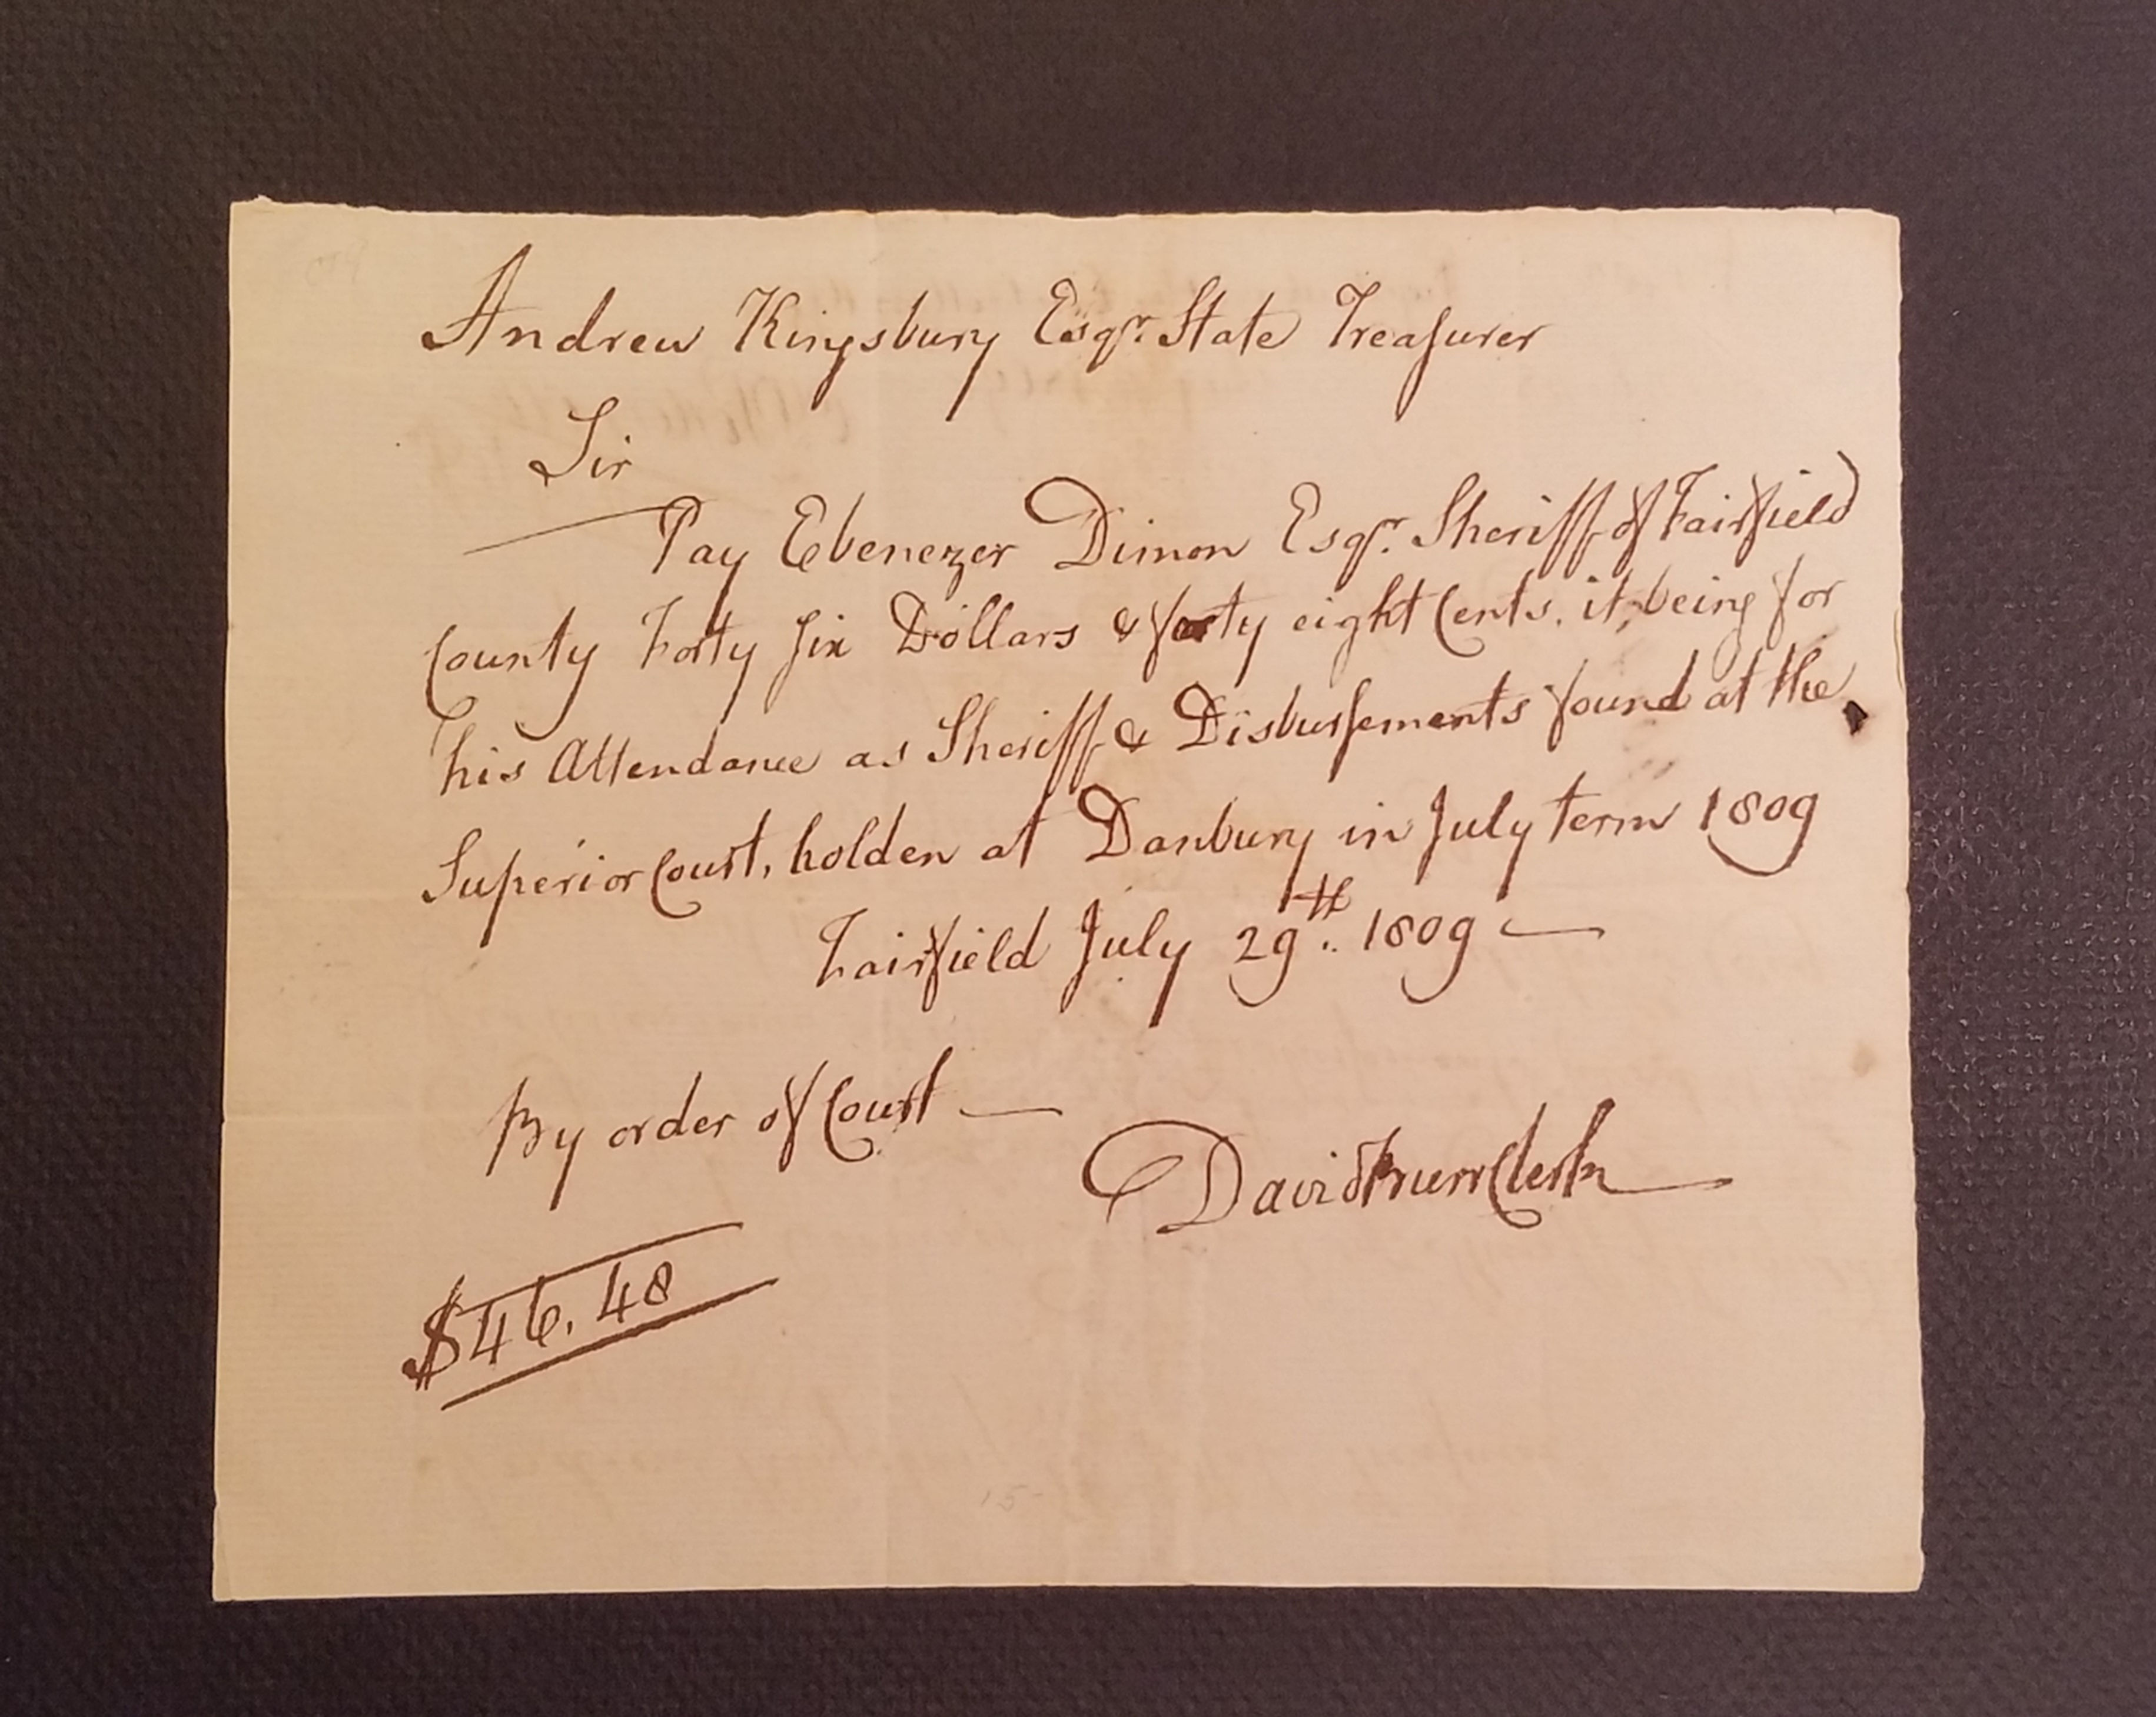 Andrew Kingsbury Esqr. State Treasurer
Sir
Pay Ebenezer Dimon Esqr. Sheriff of Fairfield
County Forty Six Dollars & forty eight Cents. it being for
his Attendance as Sheriff & Disbursements found at the
Superior Court, holden at Danbury in July term 1809
Fairfield July 29th. 1809 —
By order of Court —
David Burr Clerk
$46.48
15-